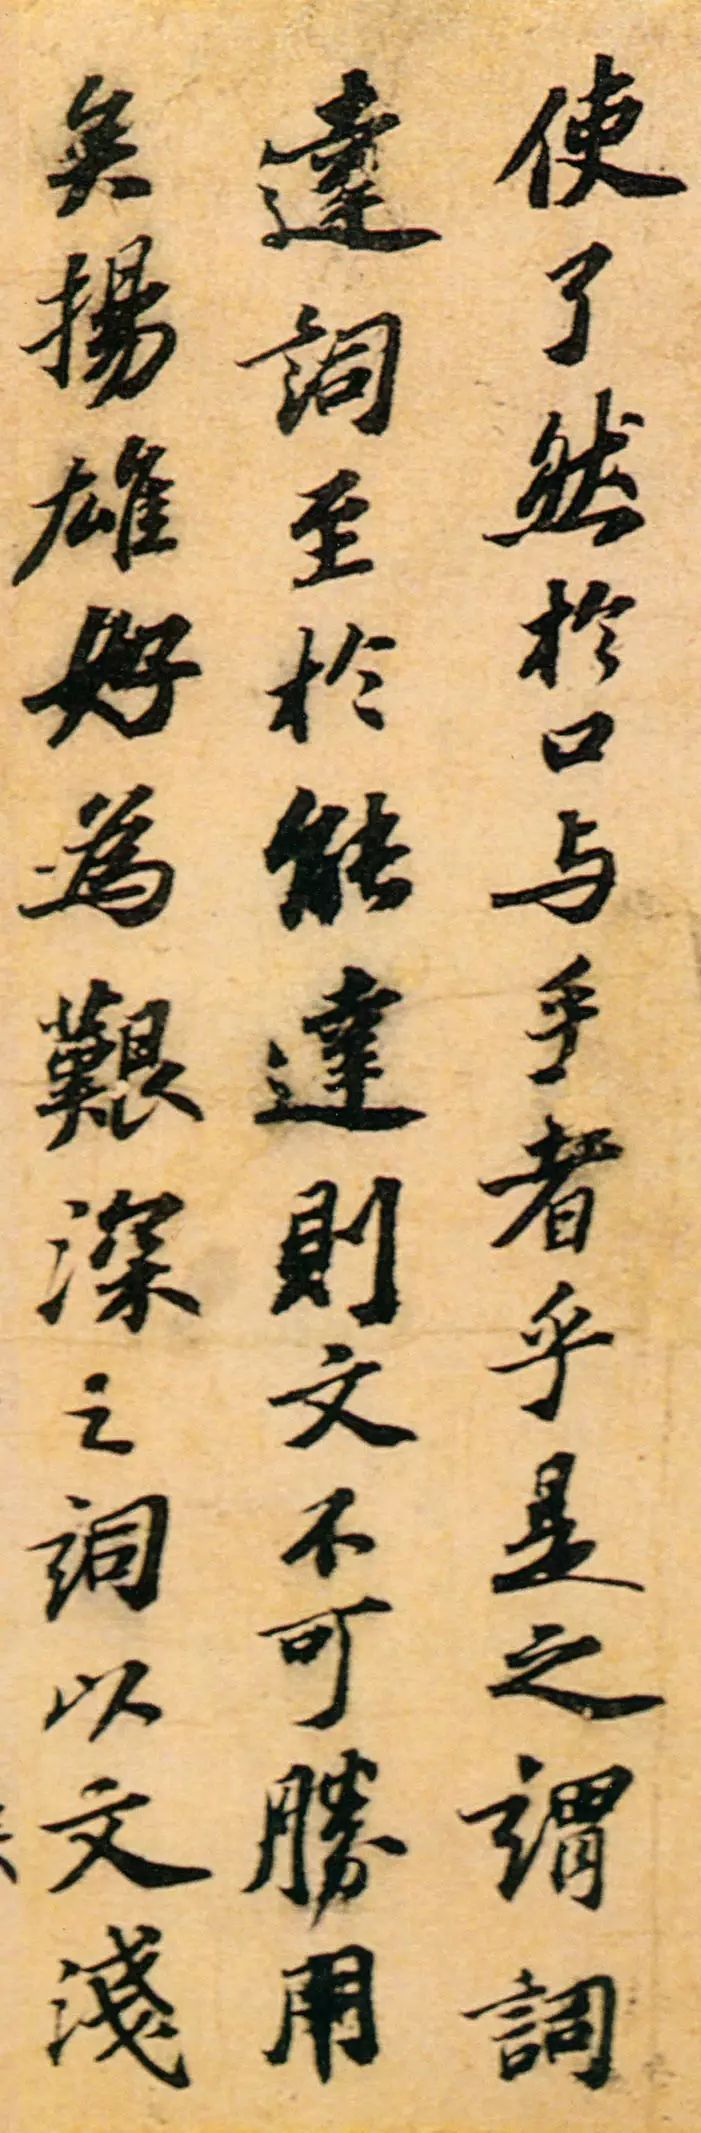 使了然於口与乎者乎是之謂詞
達詞至於能達則文不可勝用
矣揚雄好為艱深之詞以文淺